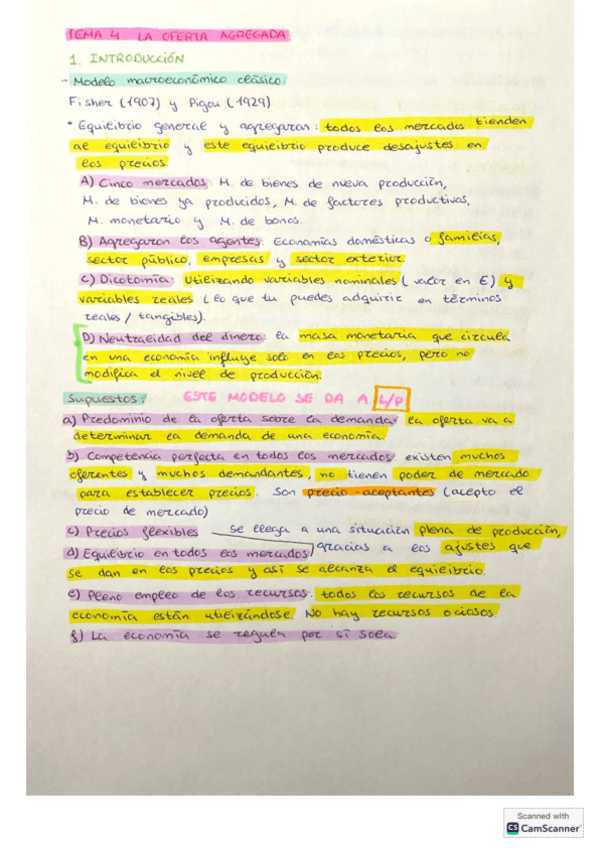 TEMA 4. LA OFERTA AGREGADA
1. INTRODUCCIÓN
- Modelo macroeconómico clásico:
Fisher (1907) y Pigou (1929)
• Equilibrio general y agregaran: todos los mercados tienden
al equilibrio y este equilibrio produce desajustes en
los precios
A) Cinco mercados: M. de bienes de nueva producción,
M. de bienes ya producidos, M. de factores productivos,
M. monetario y M. de bonos.
B) Agregaron los agentes: Economías domésticas o familias,
sector público, empresas y sector exterior
C) Dicotomía: Utilizando variables nominales (valor en €) y
variables reales (lo que tu puedes adquirir en términos
reales / tangibles).
D) Neutralidad del dinero: la masa monetaria que circula
en una economía influye solo en los precios, pero no
modifica el nivel de producción.
Supuestos: ESTE MODELO SE DA A L/P
a) Predominio de la oferta sobre la demanda: la oferta va a
determinar la demanda de una economía.
b) Competencia perfecta en todos los mercados: existen muchos
oferentes y muchos demandantes, no tienen poder de mercado
para establecer precios. Son precio-aceptantes (acepto el
precio de mercado)
c) Precios flexibles se llega a una situación plena de producción,
d) Equilibrio en todos los mercados gracias a los ajustes que
se dan en los precios y así se alcanza el equilibrio.
e) Pleno empleo de los recursos: todos los recursos de la
economía están utilizándose. No hay recursos ociosos.
f) La economía se regula por sí sola
Scanned with
CS CamScanner